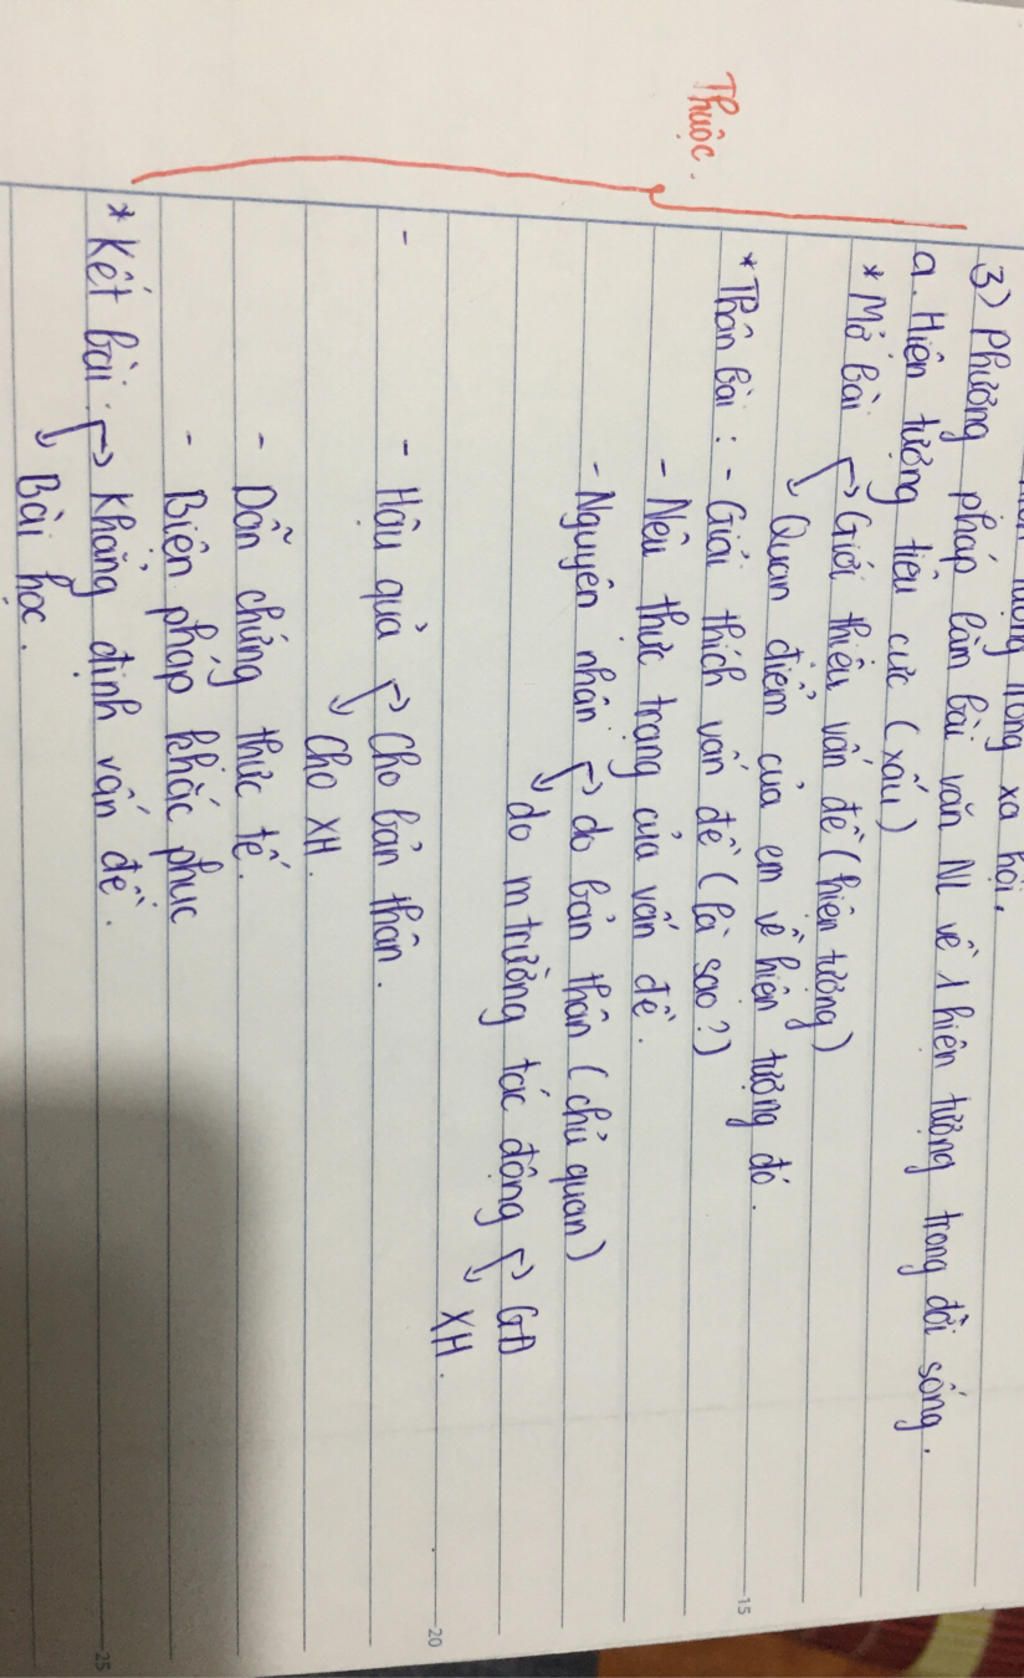 xã hội.
3) Phương pháp làm bài văn NL về 1 hiện tượng trong đời sống.
a. Hiện tượng tiêu cực (xấu)
* Mở bài ↱ Giới thiệu vấn đề (hiện tượng)
↳ Quan điểm của em về hiện tượng đó.
Thuộc.
* Thân bài : - Giải thích vấn đề (là sao?)
- Nêu thực trạng của vấn đề.
- Nguyên nhân ↱ do bản thân (chủ quan)
↳ do m trường tác động ↱ GĐ
↳ XH.
- - Hậu quả ↱ Cho bản thân.
↳ Cho XH.
- Dẫn chứng thực tế.
- Biện pháp khắc phục
* Kết bài : ↱ Khẳng định vấn đề.
↳ Bài học.
15
20
25